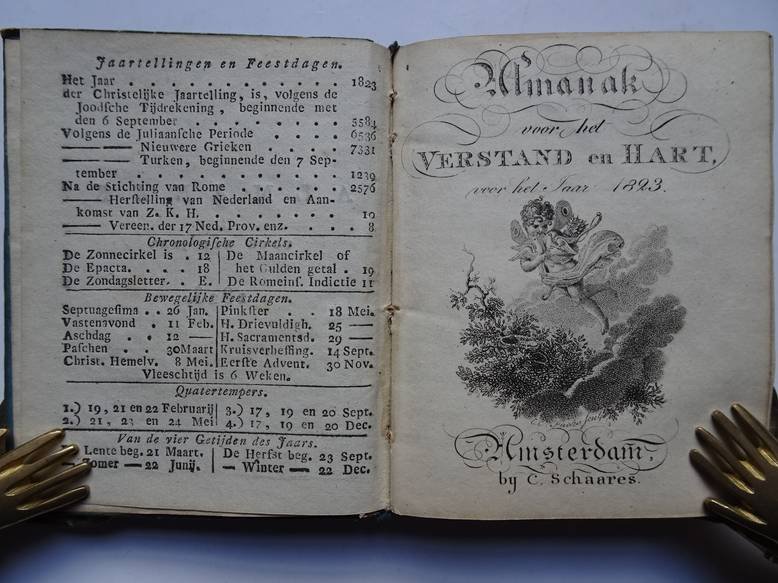 Jaartellingen en Feestdagen.
Het Jaar . . . . . . . . . . . . 1823
der Christelijke Jaartelling, is, volgens de
Joodſche Tijdrekening, beginnende met
den 6 September . . . . . . . . 5584
Volgens de Juliaansche Periode . . . . 6536
—— —— Nieuwere Grieken . . . . 7331
—— —— Turken, beginnende den 7 Sep-
tember . . . . . . . . . . . . 1239
Na de Stichting van Rome . . . . . . 2576
—— Herſtelling van Nederland en Aan-
komst van Z. K. H. . . . . . . . 10
—— Vereen. der 17 Ned. Prov. enz. . . . 8
Chronologiſche Cirkels.
De Zonnecirkel is . 12 | De Maancirkel of
De Epacta. . . . 18 | het Gulden getal . 19
De Zondagsletter. . E. | De Romeinſ. Indictie 11
Bewegelijke Feestdagen.
Septuageſima . . 26 Jan. | Pinkſter . . 18 Mei.
Vastenavond . 11 Feb. | H. Drievuldigh. 25 ——
Aschdag . . 12 —— | H. Sacramentsd. 29 ——
Paſchen . . 30 Maart | Kruisverheffing. 14 Sept.
Christ. Hemelv. 8 Mei. | Eerſte Advent. 30 Nov.
Vleeschtijd is 6 Weken.
Quatertempers.
1.) 19, 21 en 22 Februarij | 3.) 17, 19 en 20 Sept.
2.) 21, 23 en 24 Mei | 4.) 17, 19 en 20 Dec.
Van de vier Getijden des Jaars.
— Lente beg. 21 Maart. | De Herfst beg. 23 Sept.
— Zomer — 22 Junij. | — Winter — 22 Dec.
Almanak
voor het
VERSTAND en HART,
voor het Jaar 1823.
sculp.
Amsterdam,
by C. Schaares.